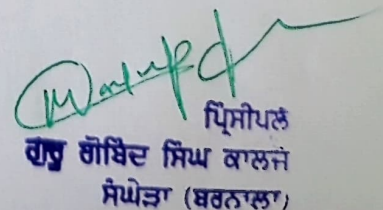 ਪ੍ਰਿੰਸੀਪਲ
ਗੁਰੂ ਗੋਬਿੰਦ ਸਿੰਘ ਕਾਲਜ
ਸੰਘੇੜਾ (ਬਰਨਾਲਾ)